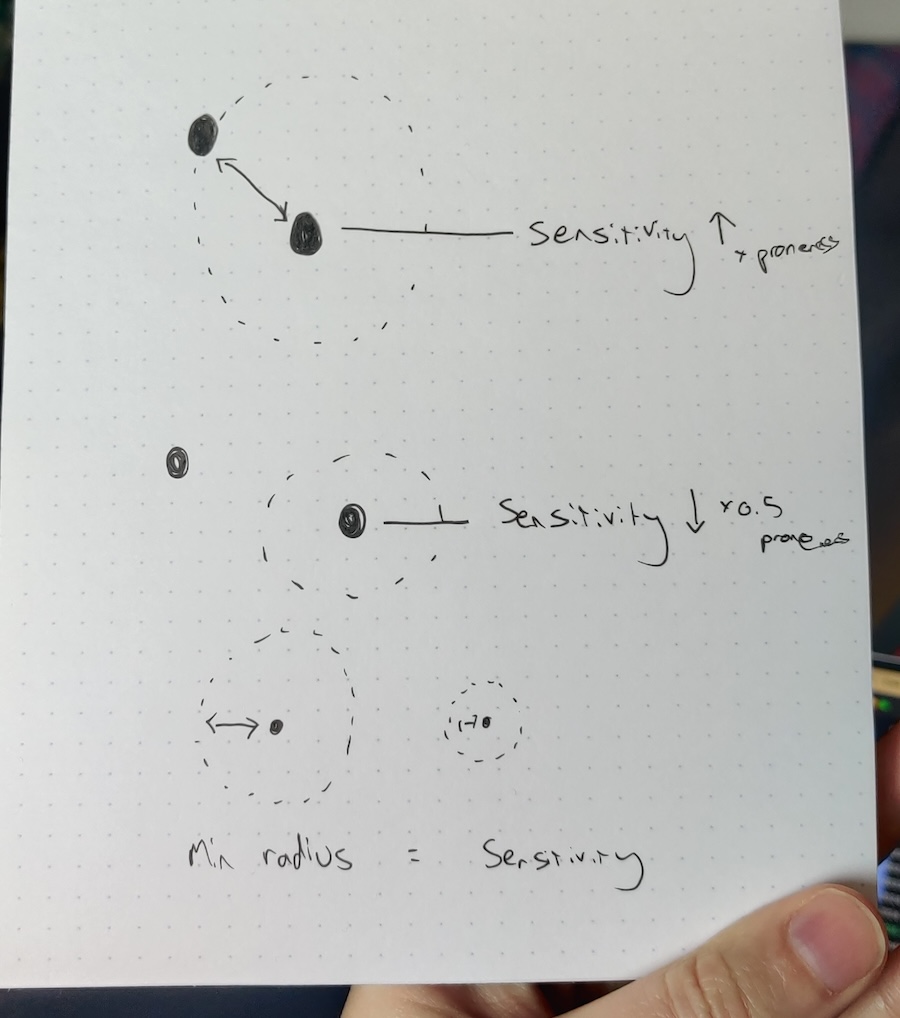 Sensitivity ↑
x proneness
Sensitivity ↓ x0.5
Min radius = Sensitivity